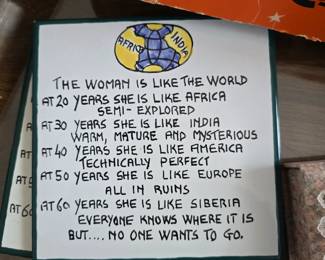 AFRICA
INDIA
THE WOMAN IS LIKE THE WORLD
AT 20 YEARS SHE IS LIKE AFRICA
SEMI-EXPLORED
AT 30 YEARS SHE IS LIKE INDIA
WARM, MATURE AND MYSTERIOUS
AT 40 YEARS SHE IS LIKE AMERICA
TECHNICALLY PERFECT
AT 50 YEARS SHE IS LIKE EUROPE
ALL IN RUINS
AT 60 YEARS SHE IS LIKE SIBERIA
EVERYONE KNOWS WHERE IT IS
BUT.... NO ONE WANTS TO GO.
AT 60